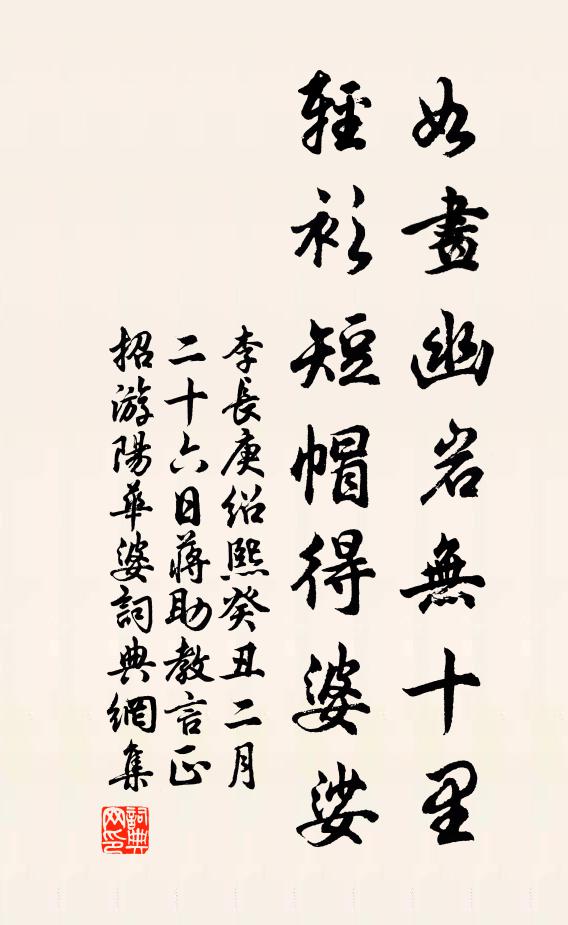 如畫幽岩無十里
輕衫短帽得婆娑
李長庚紹熙癸丑二月
二十六日蔣助教言正
招游陽華婆詞典網集
詞典
网印